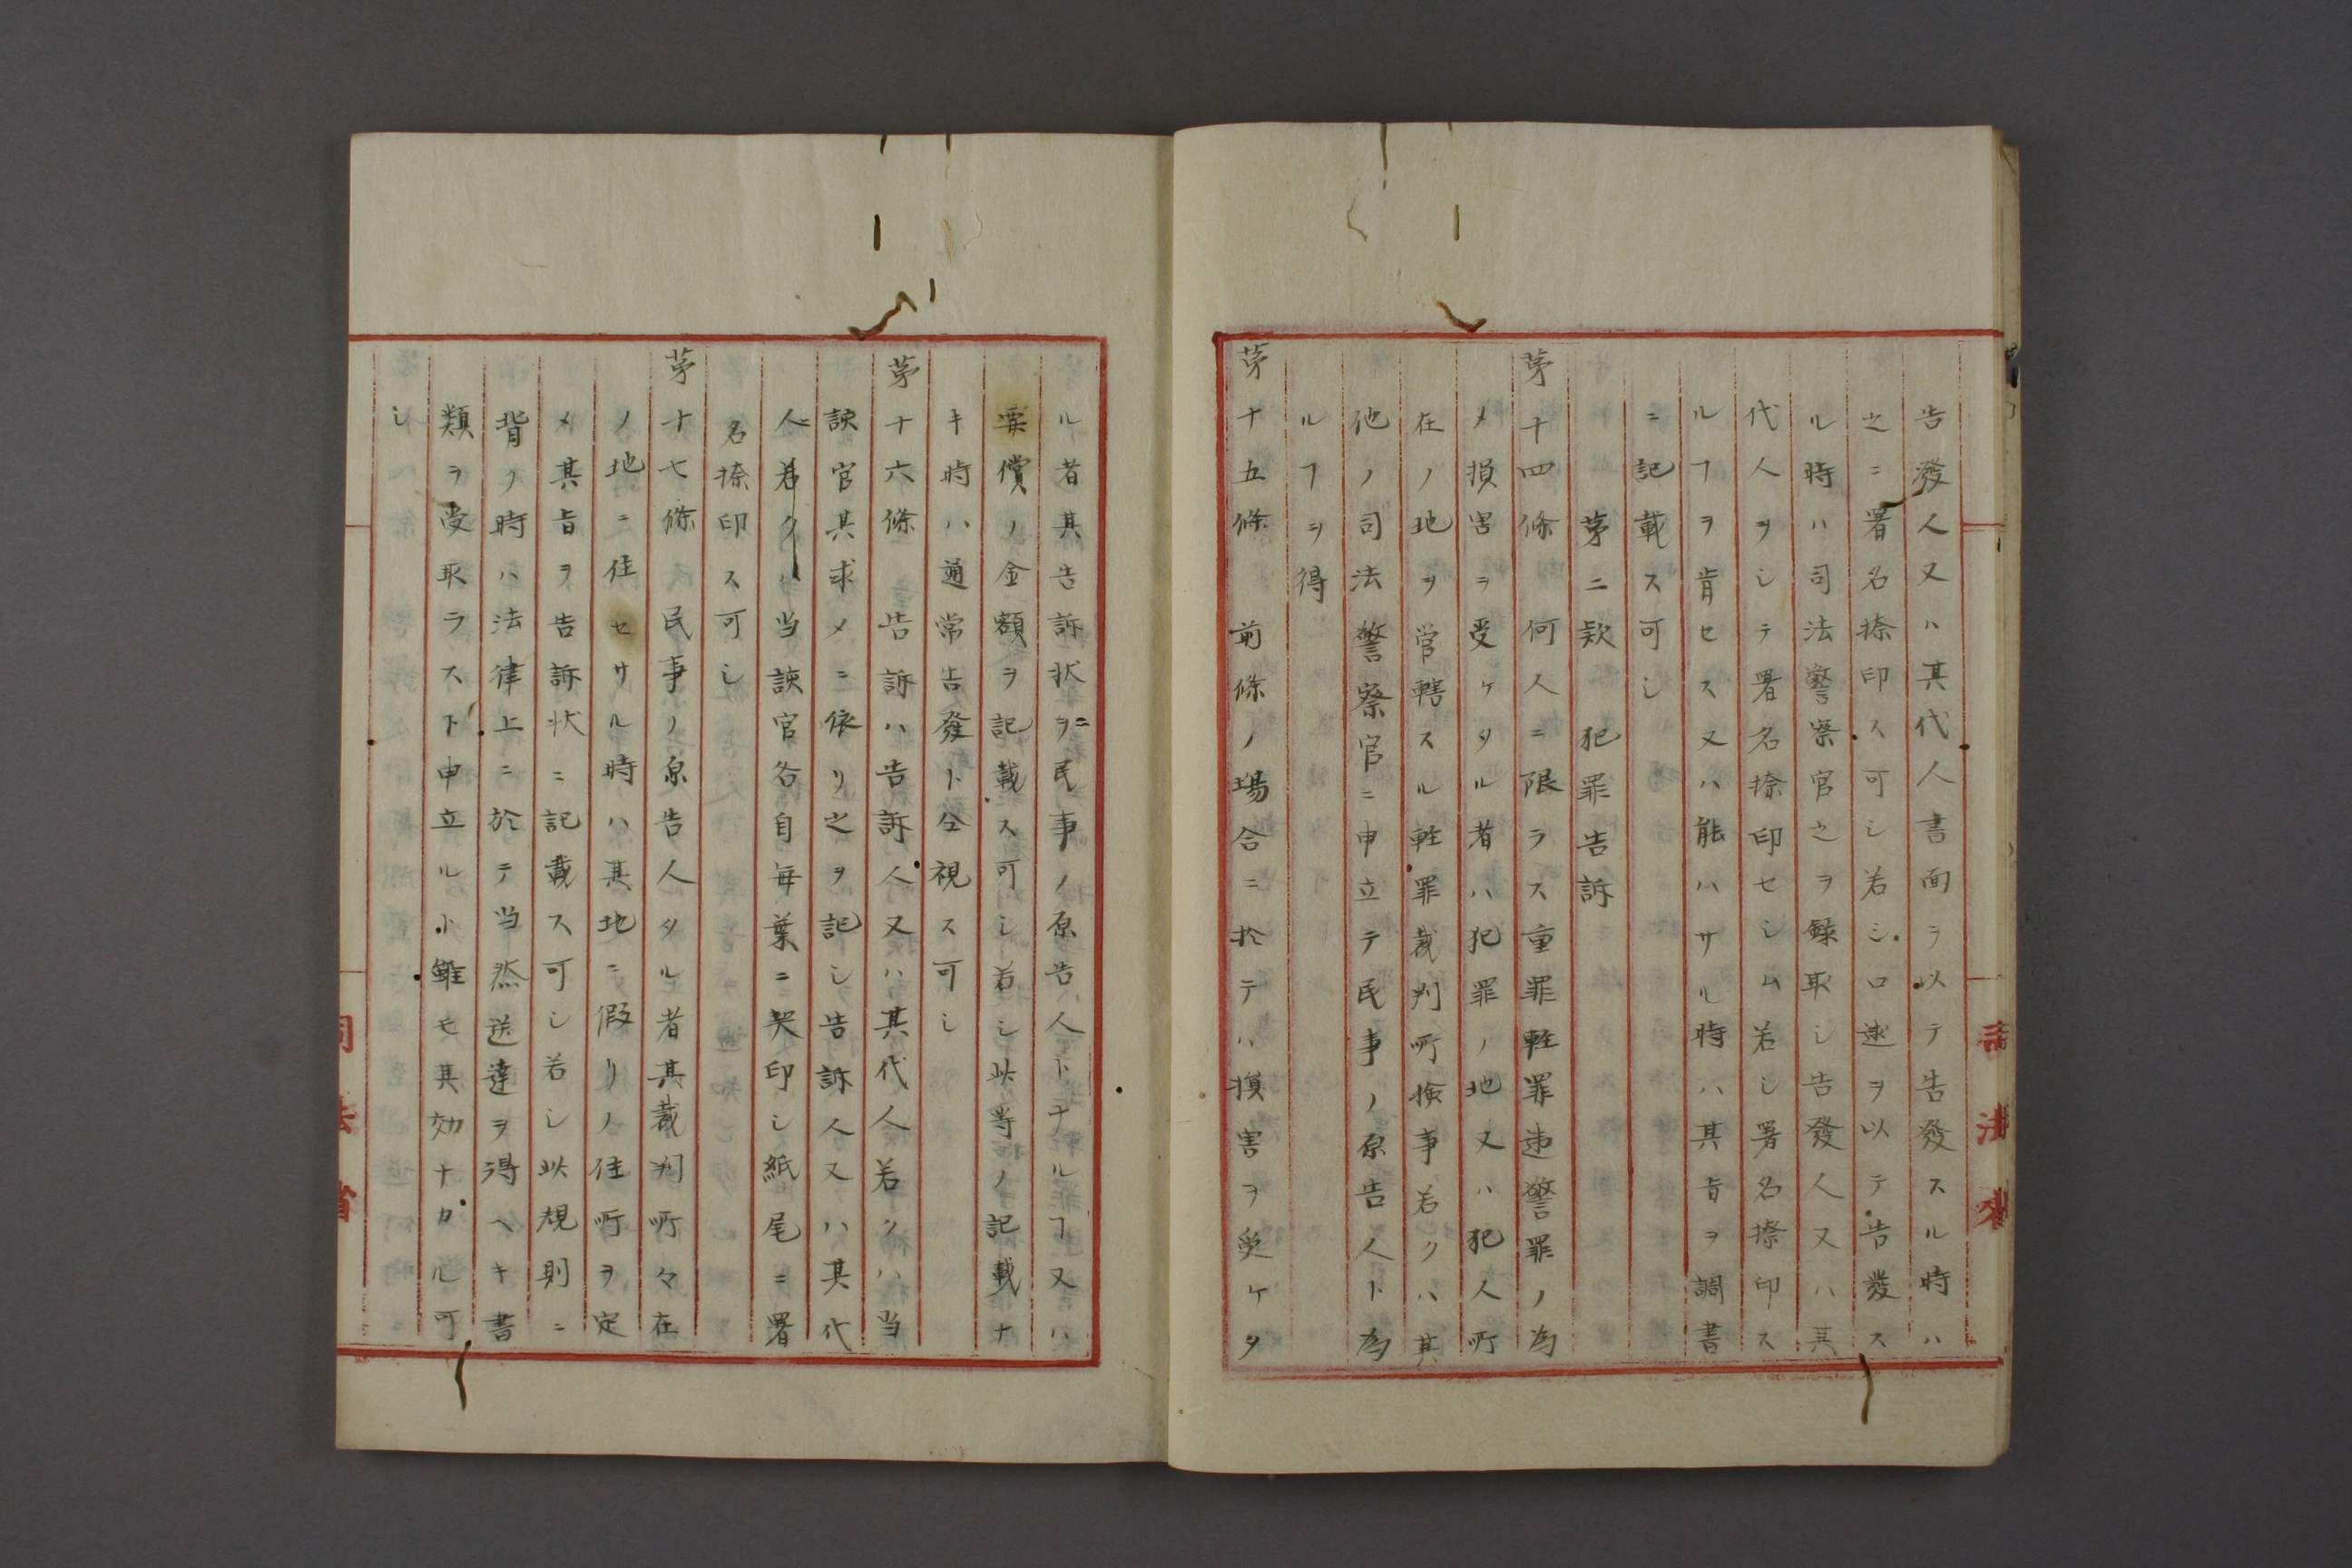 告發人又ハ其代人書面ヲ以テ告發スル時ハ
之ニ署名捺印ス可シ若シ口述ヲ以テ告發ス
ル時ハ司法警察官之ヲ録取シ告發人又ハ其
代人ヲシテ署名捺印セシム若シ署名捺印ス
ルヿヲ肯セス又ハ能ハサル時ハ其旨ヲ調書
ニ記載ス可シ
茅二款 犯罪告訴
茅十四條 何人ニ限ラス重罪軽罪違警罪ノ為
メ損害ヲ受ケタル者ハ犯罪ノ地又ハ犯人所
在ノ地ヲ管轄スル軽罪裁判所検事若クハ其
他ノ司法警察官ニ申立テ民事ノ原告人ト為
ルヿヲ得
茅十五條 前條ノ場合ニ於テハ損害ヲ受ケタ
ル者其告訴状ヲニ民事ノ原告人トナルヿ又ハ
要償ノ金額ヲ記載ス可シ若シ此等ノ記載ナ
キ時ハ通常告發ト仝視ス可シ
茅十六條 告訴ハ告訴人又ハ其代人若クハ当
該官其求メニ依リ之ヲ記シ告訴人又ハ其代
人若ク当該官各自毎葉ニ契印シ紙尾ニ署
名捺印ス可シ
茅十七條 民事ノ原告人タル者其裁判所々在
ノ地ニ住セサル時ハ其地ニ假リノ住所ヲ定
メ其旨ヲ告訴状ニ記載ス可シ若シ此規則ニ
背ク時ハ法律上ニ於テ当然送達ヲ得ヘキ書
類ヲ受取ラスト申立ルト雖モ其効ナカル可
シ
司法省